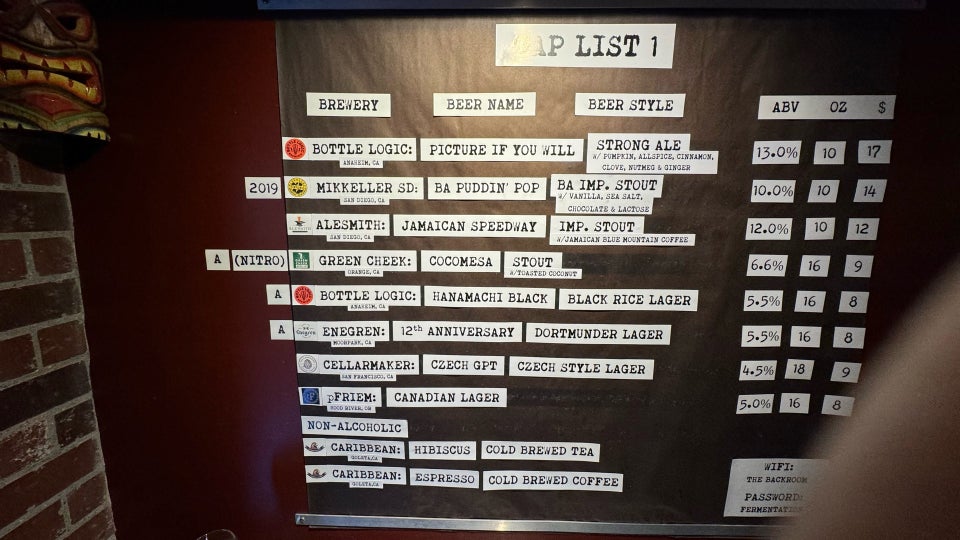 TAP LIST 1
BREWERY BEER NAME BEER STYLE ABV OZ $
BOTTLE LOGIC: PICTURE IF YOU WILL STRONG ALE 13.0% 10 17
ANAHEIM, CA W/ PUMPKIN, ALLSPICE, CINNAMON,
CLOVE, NUTMEG & GINGER
2019 MIKKELLER SD: BA PUDDIN' POP BA IMP. STOUT 10.0% 10 14
SAN DIEGO, CA W/ VANILLA, SEA SALT,
CHOCOLATE & LACTOSE
ALESMITH: JAMAICAN SPEEDWAY IMP. STOUT 12.0% 10 12
SAN DIEGO, CA W/JAMAICAN BLUE MOUNTAIN COFFEE
A (NITRO) GREEN CHEEK: COCOMESA STOUT 6.6% 16 9
ORANGE, CA W/TOASTED COCONUT
A BOTTLE LOGIC: HANAMACHI BLACK BLACK RICE LAGER 5.5% 16 8
ANAHEIM, CA
A ENEGREN: 12th ANNIVERSARY DORTMUNDER LAGER 5.5% 16 8
MOORPARK, CA
CELLARMAKER: CZECH GPT CZECH STYLE LAGER 4.5% 18 9
SAN FRANCISCO, CA
pFRIEM: CANADIAN LAGER 5.0% 16 8
HOOD RIVER, OR
NON-ALCOHOLIC
CARIBBEAN: HIBISCUS COLD BREWED TEA
GOLETA,CA
CARIBBEAN: ESPRESSO COLD BREWED COFFEE
GOLETA,CA
WIFI:
THE BACKROOM
PASSWORD:
FERMENTATION